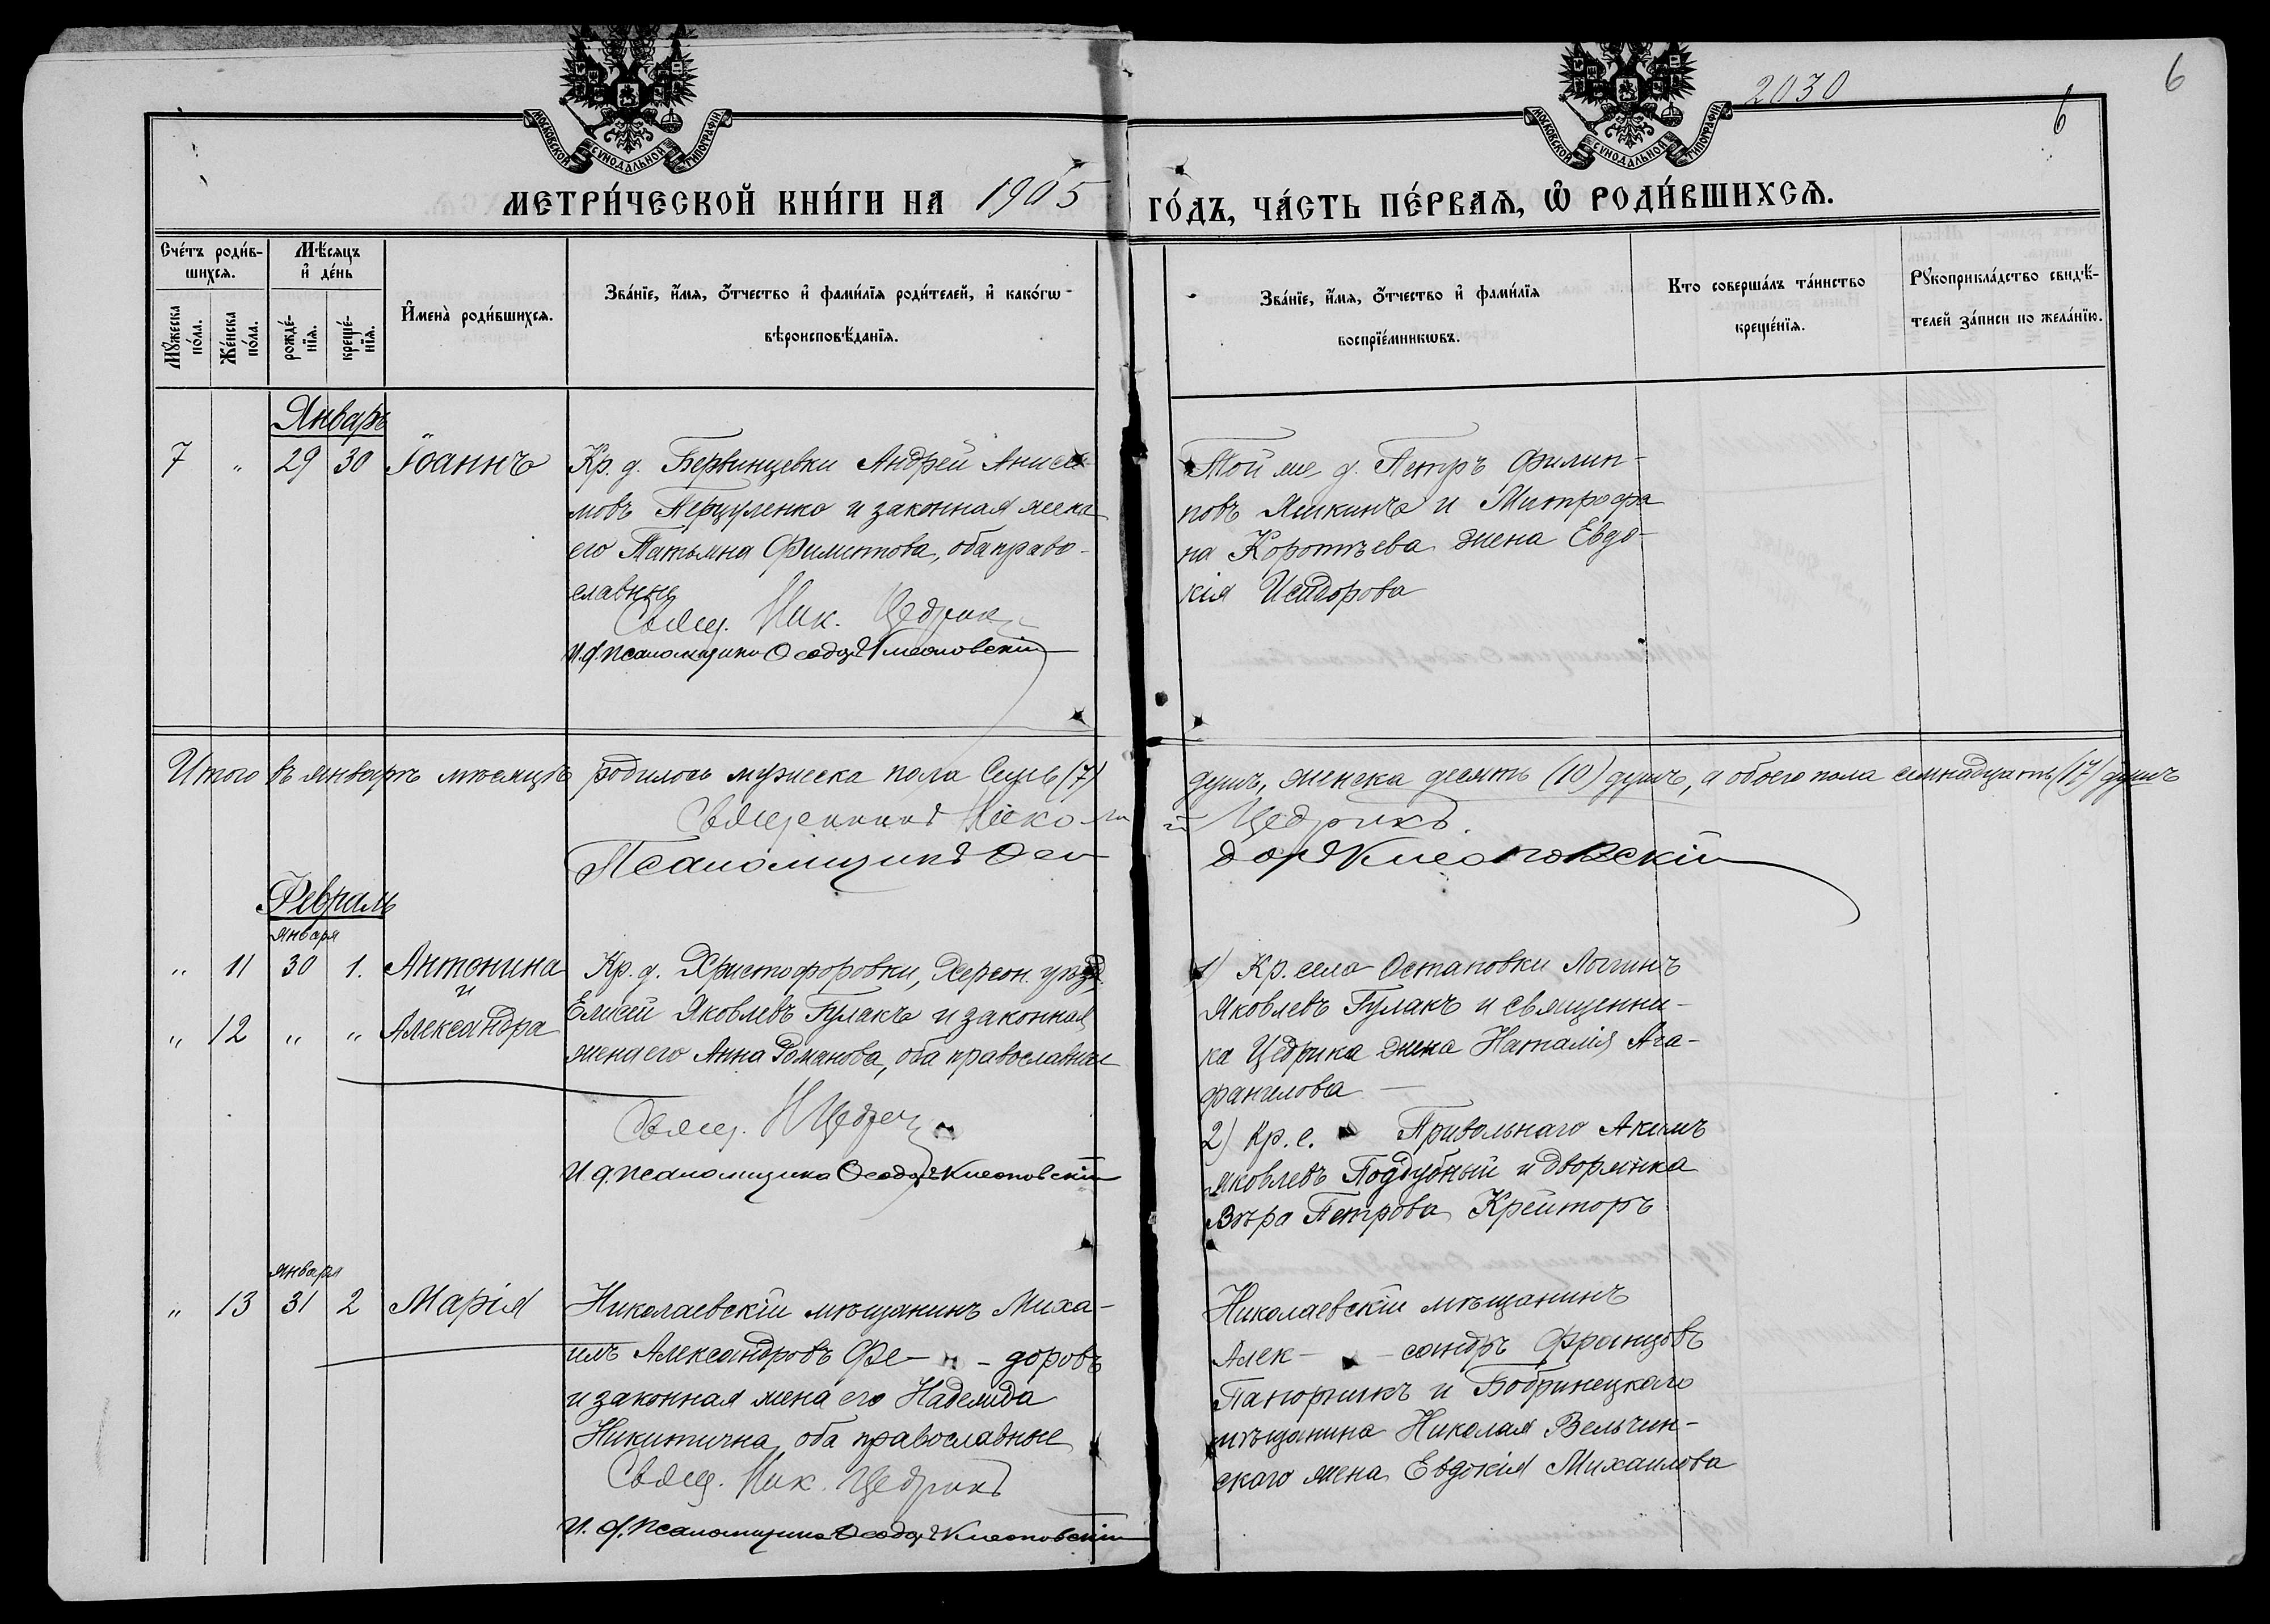 2030
6
6
МОСКОВСКОЙ СѴНОДАЛЬНОЙ ТИПОГРАФІИ
МОСКОВСКОЙ СѴНОДАЛЬНОЙ ТИПОГРАФІИ
МЕТРИ́ЧЕСКОЙ КНИ́ГИ НА 1905 ГО́ДЪ, ЧА́СТЬ ПЕ́РВАѦ, Ѡ҆ РОДИ́ВШИХСѦ.
Сче́тъ роди́в-
шихсѧ.
Мꙋ́жеска по́ла.
Же́нска по́ла.
Мѣ́сѧцъ
и҆ де́нь
рожде́-
нїѧ.
креще́-
нїѧ.
И҆мена̀ роди́вшихсѧ.
Зва́нїе, и҆́мѧ, ѻ҆́тчество и҆ фами́лїѧ роди́телей, и҆ како́гѡ
вѣроисповѣ́данїѧ.
Зва́нїе, и҆́мѧ, ѻ҆́тчество и҆ фами́лїѧ
воспрїе́мникѡвъ.
Кто соверша́лъ та́инство
креще́нїѧ.
Рꙋкоприкла́дство свидѣ́-
телей за́писи по жела́нїю.
Январь
7 " 29 30 Іоаннъ
Кр. д. Бервинцевки Андрей Aниси-
мовъ Перцуленко и законная жена
его Татьяна Филиппова, оба право-
славные
Свящ. Ник. Цедрикъ
И. д. псаломщика Ѳеодоръ Клеоповскій
Той же д. Петръ Филип-
повъ Яшкинъ и Митрофа
на Коротъева жена Евдо-
кія Исидорова
Итого въ январѣ мѣсяцѣ родилось мужеска пола семь (7) душъ, женска десять (10) душъ, а обоего пола семнадцать (17) душъ
Священникъ Николай Цедрикъ.
Псаломщикъ Ѳеодоръ Клеоповскій
Февраль
января
" 11 30 1. Антонина
и
" 12 " " Александра
Кр. д. Христофоровки, Херсон. уѣзд.
Елисей Яковлевъ Гулакъ и законная
жена его Анна Романова, оба православные
Свящ. Н Цедрикъ
И. д. псаломщика Ѳеодоръ Клеоповскій
1) Кр. села Остаповки Логинъ
Яковлевъ Гулакъ и священни-
ка Цедрика жена Наталія Ага-
фангелова
2) Кр. с. Привольнаго Акимъ
Яковлевъ Поддубный и дворянка
Вѣра Петрова Крейторъ
января
" 13 31 2 Марія
Николаевскій мѣщанинъ Миха-
илъ Александровъ Фе- - доровъ
и законная жена его Надежда
Никитична, оба православные
Свящ. Ник. Цедрикъ
И. д. псаломщика Ѳеодоръ Клеоповскій
Николаевскій мѣщанинъ
Алек- - сандръ Францовъ
и Бобринецкаго
мѣщанина Николая Вельчин-
скаго жена Евдокія Михаилова